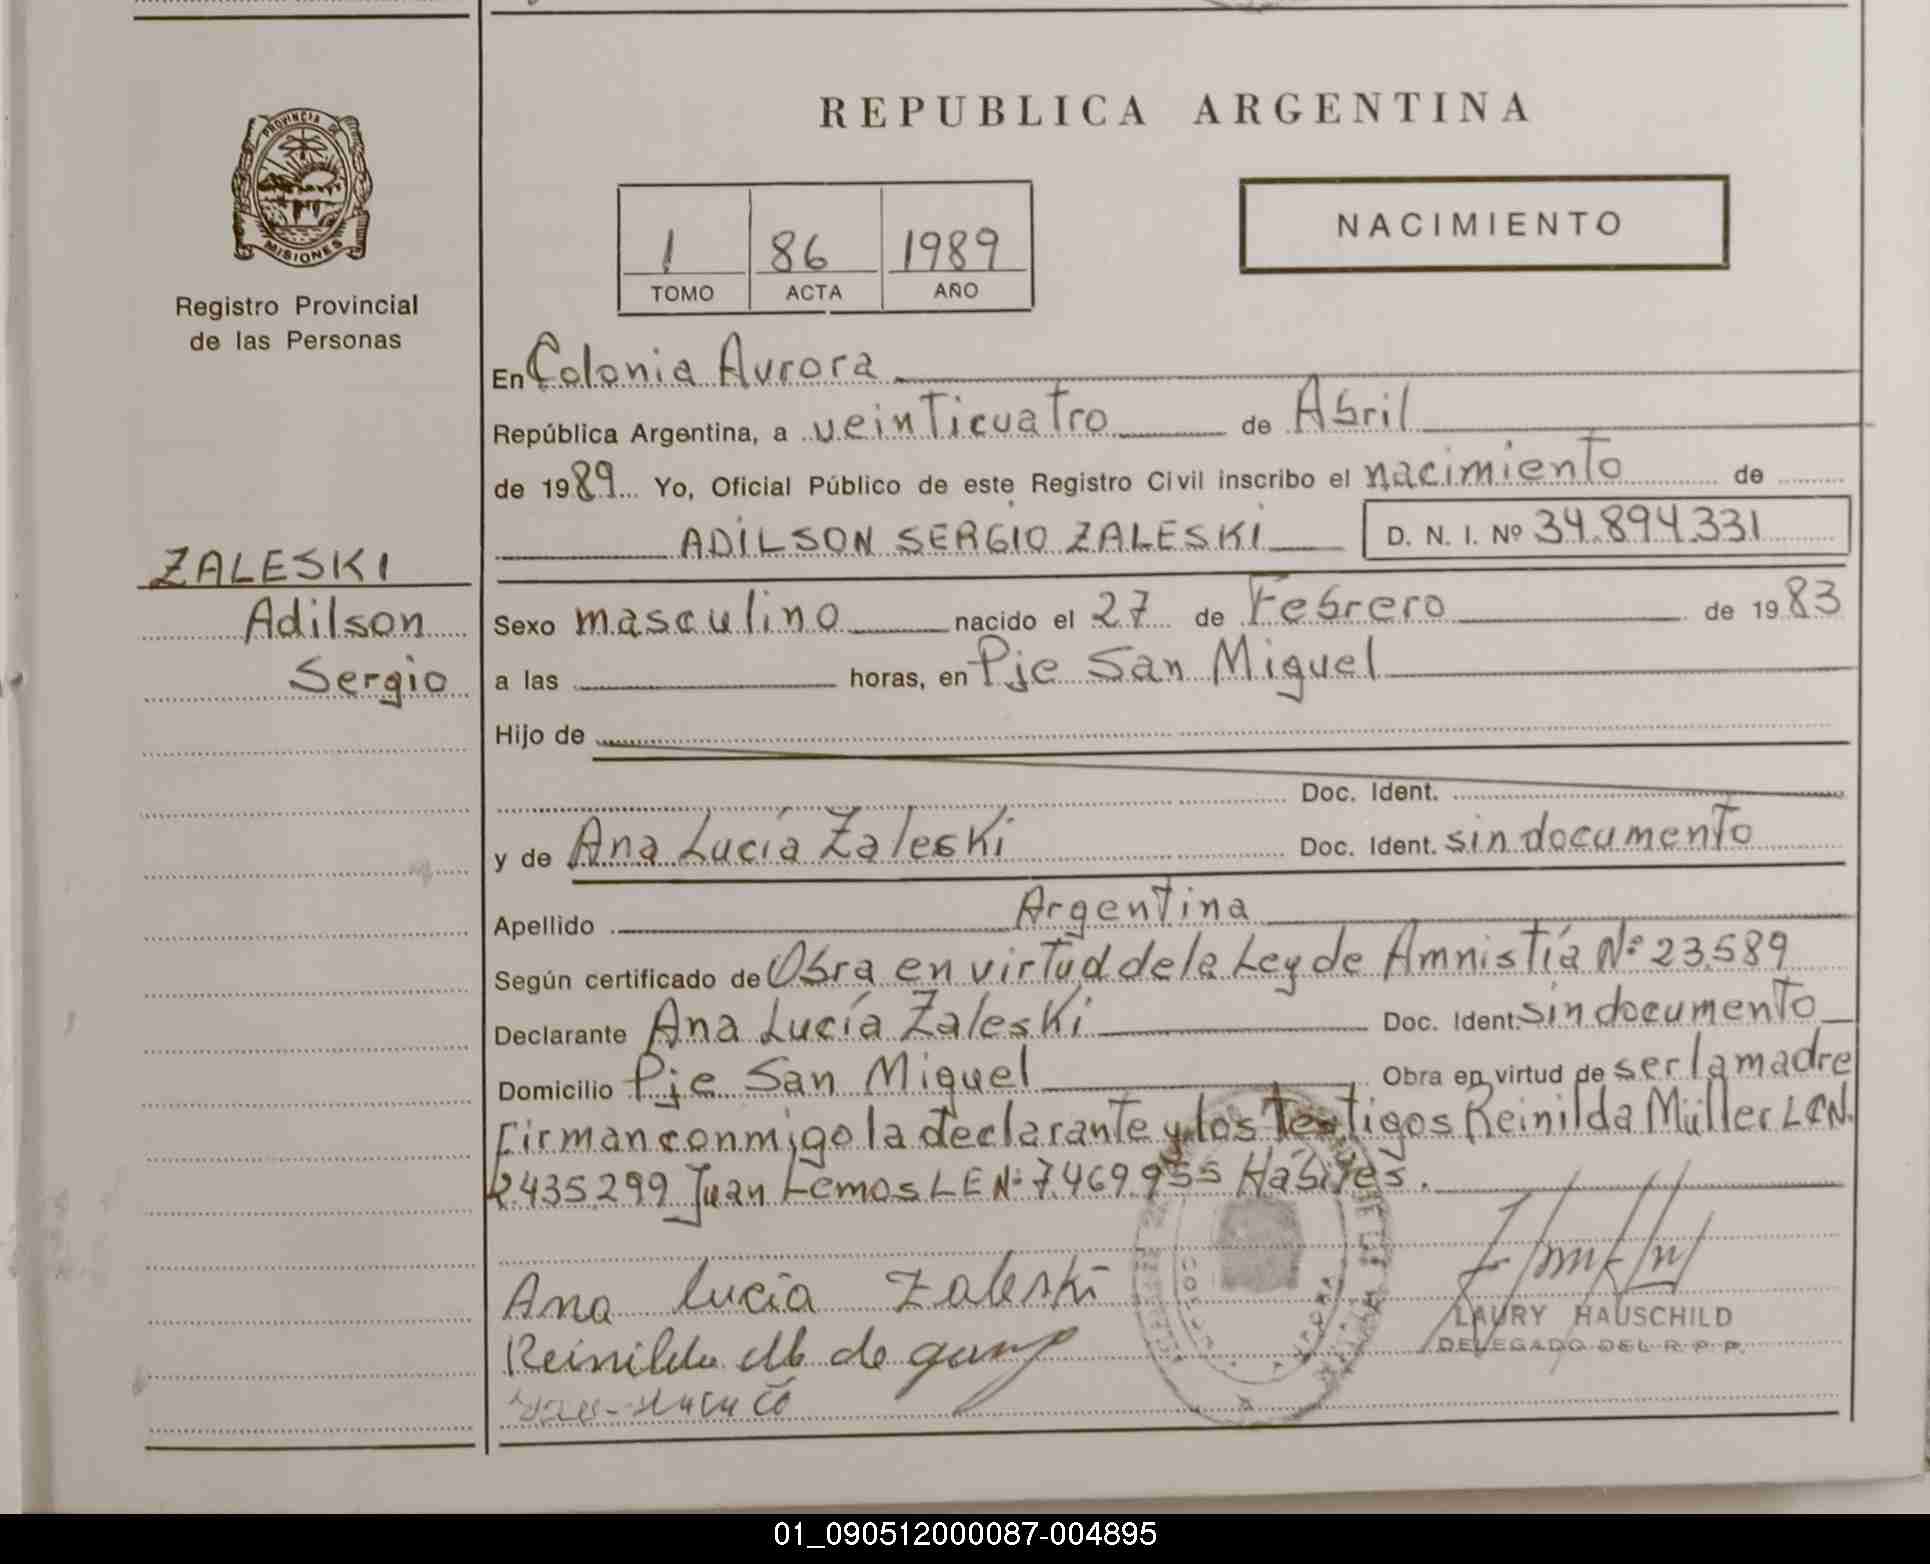 REPUBLICA ARGENTINA
PROVINCIA DE
MISIONES
Registro Provincial
de las Personas
1 86 1989
TOMO ACTA AÑO
NACIMIENTO
En Colonia Aurora
República Argentina, a veinticuatro de Abril
de 1989 Yo, Oficial Público de este Registro Civil inscribo el nacimiento de
ADILSON SERGIO ZALESKI D. N. I. Nº 34.894.331
ZALESKI
Adilson
Sergio
Sexo masculino nacido el 27 de Febrero de 1983
a las horas, en Pje San Miguel
Hijo de
Doc. Ident.
y de Ana Lucía Zaleski Doc. Ident. sin documento
Apellido Argentina
Según certificado de Obra en virtud de la Ley de Amnistía Nº 23.589
Declarante Ana Lucía Zaleski Doc. Ident. sin documento
Domicilio Pje San Miguel Obra en virtud de ser la madre
Firman conmigo la declarante y los testigos Reinilda Müller LCN.
2435299 Juan Lemos LE Nº 7.469.955 Hábiles.
Ana Lucia Zaleski
Reinilda M de
LAURY HAUSCHILD
DELEGADO DEL R. P. P.
01_090512000087-004895